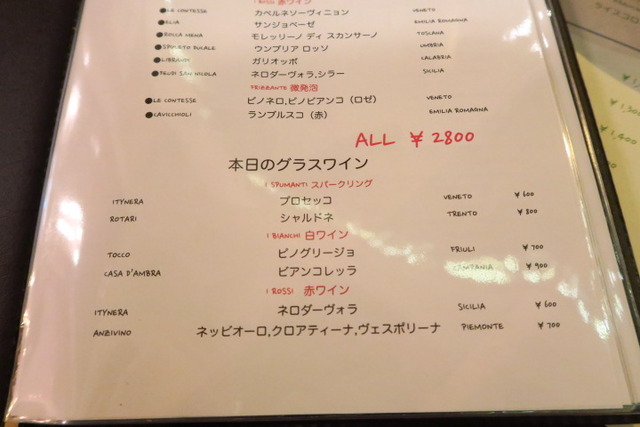 I ROSSI 赤ワイン
●LE CONTESSE カベルネソーヴィニョン VENETO
●ELIA サンジョベーゼ EMILIA ROMAGNA
●ROCCA MENA モレッリーノ ディ スカンサーノ TOSCANA
●SPOLETO DUCALE ウンブリア ロッソ UMBRIA
●LIBRANDI ガリオッポ CALABRIA
●FEUDI SAN NICOLA ネロダーヴォラ,シラー SICILIA
FRIZZANTE 微発泡
●LE CONTESSE ピノネロ,ピノビアンコ（ロゼ） VENETO
●CAVICCHIOLI ランブルスコ（赤） EMILIA ROMAGNA
ALL ¥2800
本日のグラスワイン
I SPUMANTI スパークリング
ITYNERA プロセッコ VENETO ¥600
ROTARI シャルドネ TRENTO ¥800
I BIANCHI 白ワイン
TOCCO ピノグリージョ FRIULI ¥700
CASA D'AMBRA ビアンコレッラ ¥900
I ROSSI 赤ワイン
ITYNERA ネロダーヴォラ SICILIA ¥600
ANZIVINO ネッビオーロ,クロアティーナ,ヴェスポリーナ PIEMONTE ¥700